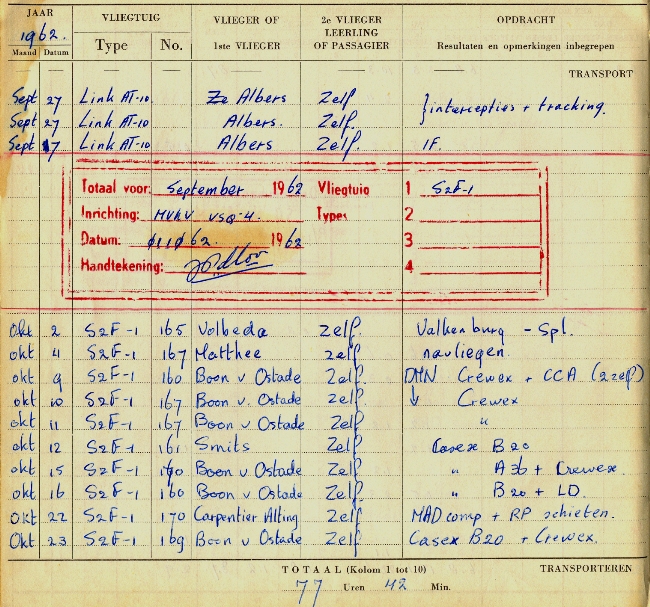 JAAR VLIEGTUIG VLIEGER OF 2e VLIEGER OPDRACHT
1962. LEERLING
Maand Datum Type No. 1ste VLIEGER OF PASSAGIER Resultaten en opmerkingen inbegrepen
TRANSPORT
Sept 27 Link AT-10. Albers Zelf
}intercepties + tracking.
Sept 27 Link AT-10 Albers. Zelf.
Sept 17 Link AT-10 Albers Zelf. IF.
Totaal voor: September 1962 Vliegtuig 1 S2F-1
Inrichting: MVKV VSQ-4. Types 2
Datum: 62. 1962 3
Handtekening: 4
okt 2 S2F-1 165 Volbeda Zelf. Valkenburg - Spl.
okt 4 S2F-1 167 Matthee zelf. navliegen.
okt 9 S2F-1 160 Boon v Ostade Zelf. Crewex + CCA (2 zelf)
okt 10 S2F-1 167 Boon v Ostade Zelf. ↓ Crewex
okt 11 S2F-1 167 Boon v Ostade Zelf. "
okt 12 S2F-1 161 Smits Zelf Casex B20
okt 15 S2F-1 Boon v Ostade Zelf. " A3b + Crewex.
okt 16 S2F-1 160 Boon v Ostade Zelf. " B20 + LD.
okt 22 S2F-1 170 Carpentier Alting Zelf MADcomp + RP schieten.
Okt 23 S2F-1 169 Boon v Ostade Zelf Casex B20 + Crewex.
TOTAAL (Kolom 1 tot 10) TRANSPORTEREN
77 Uren 42 Min.